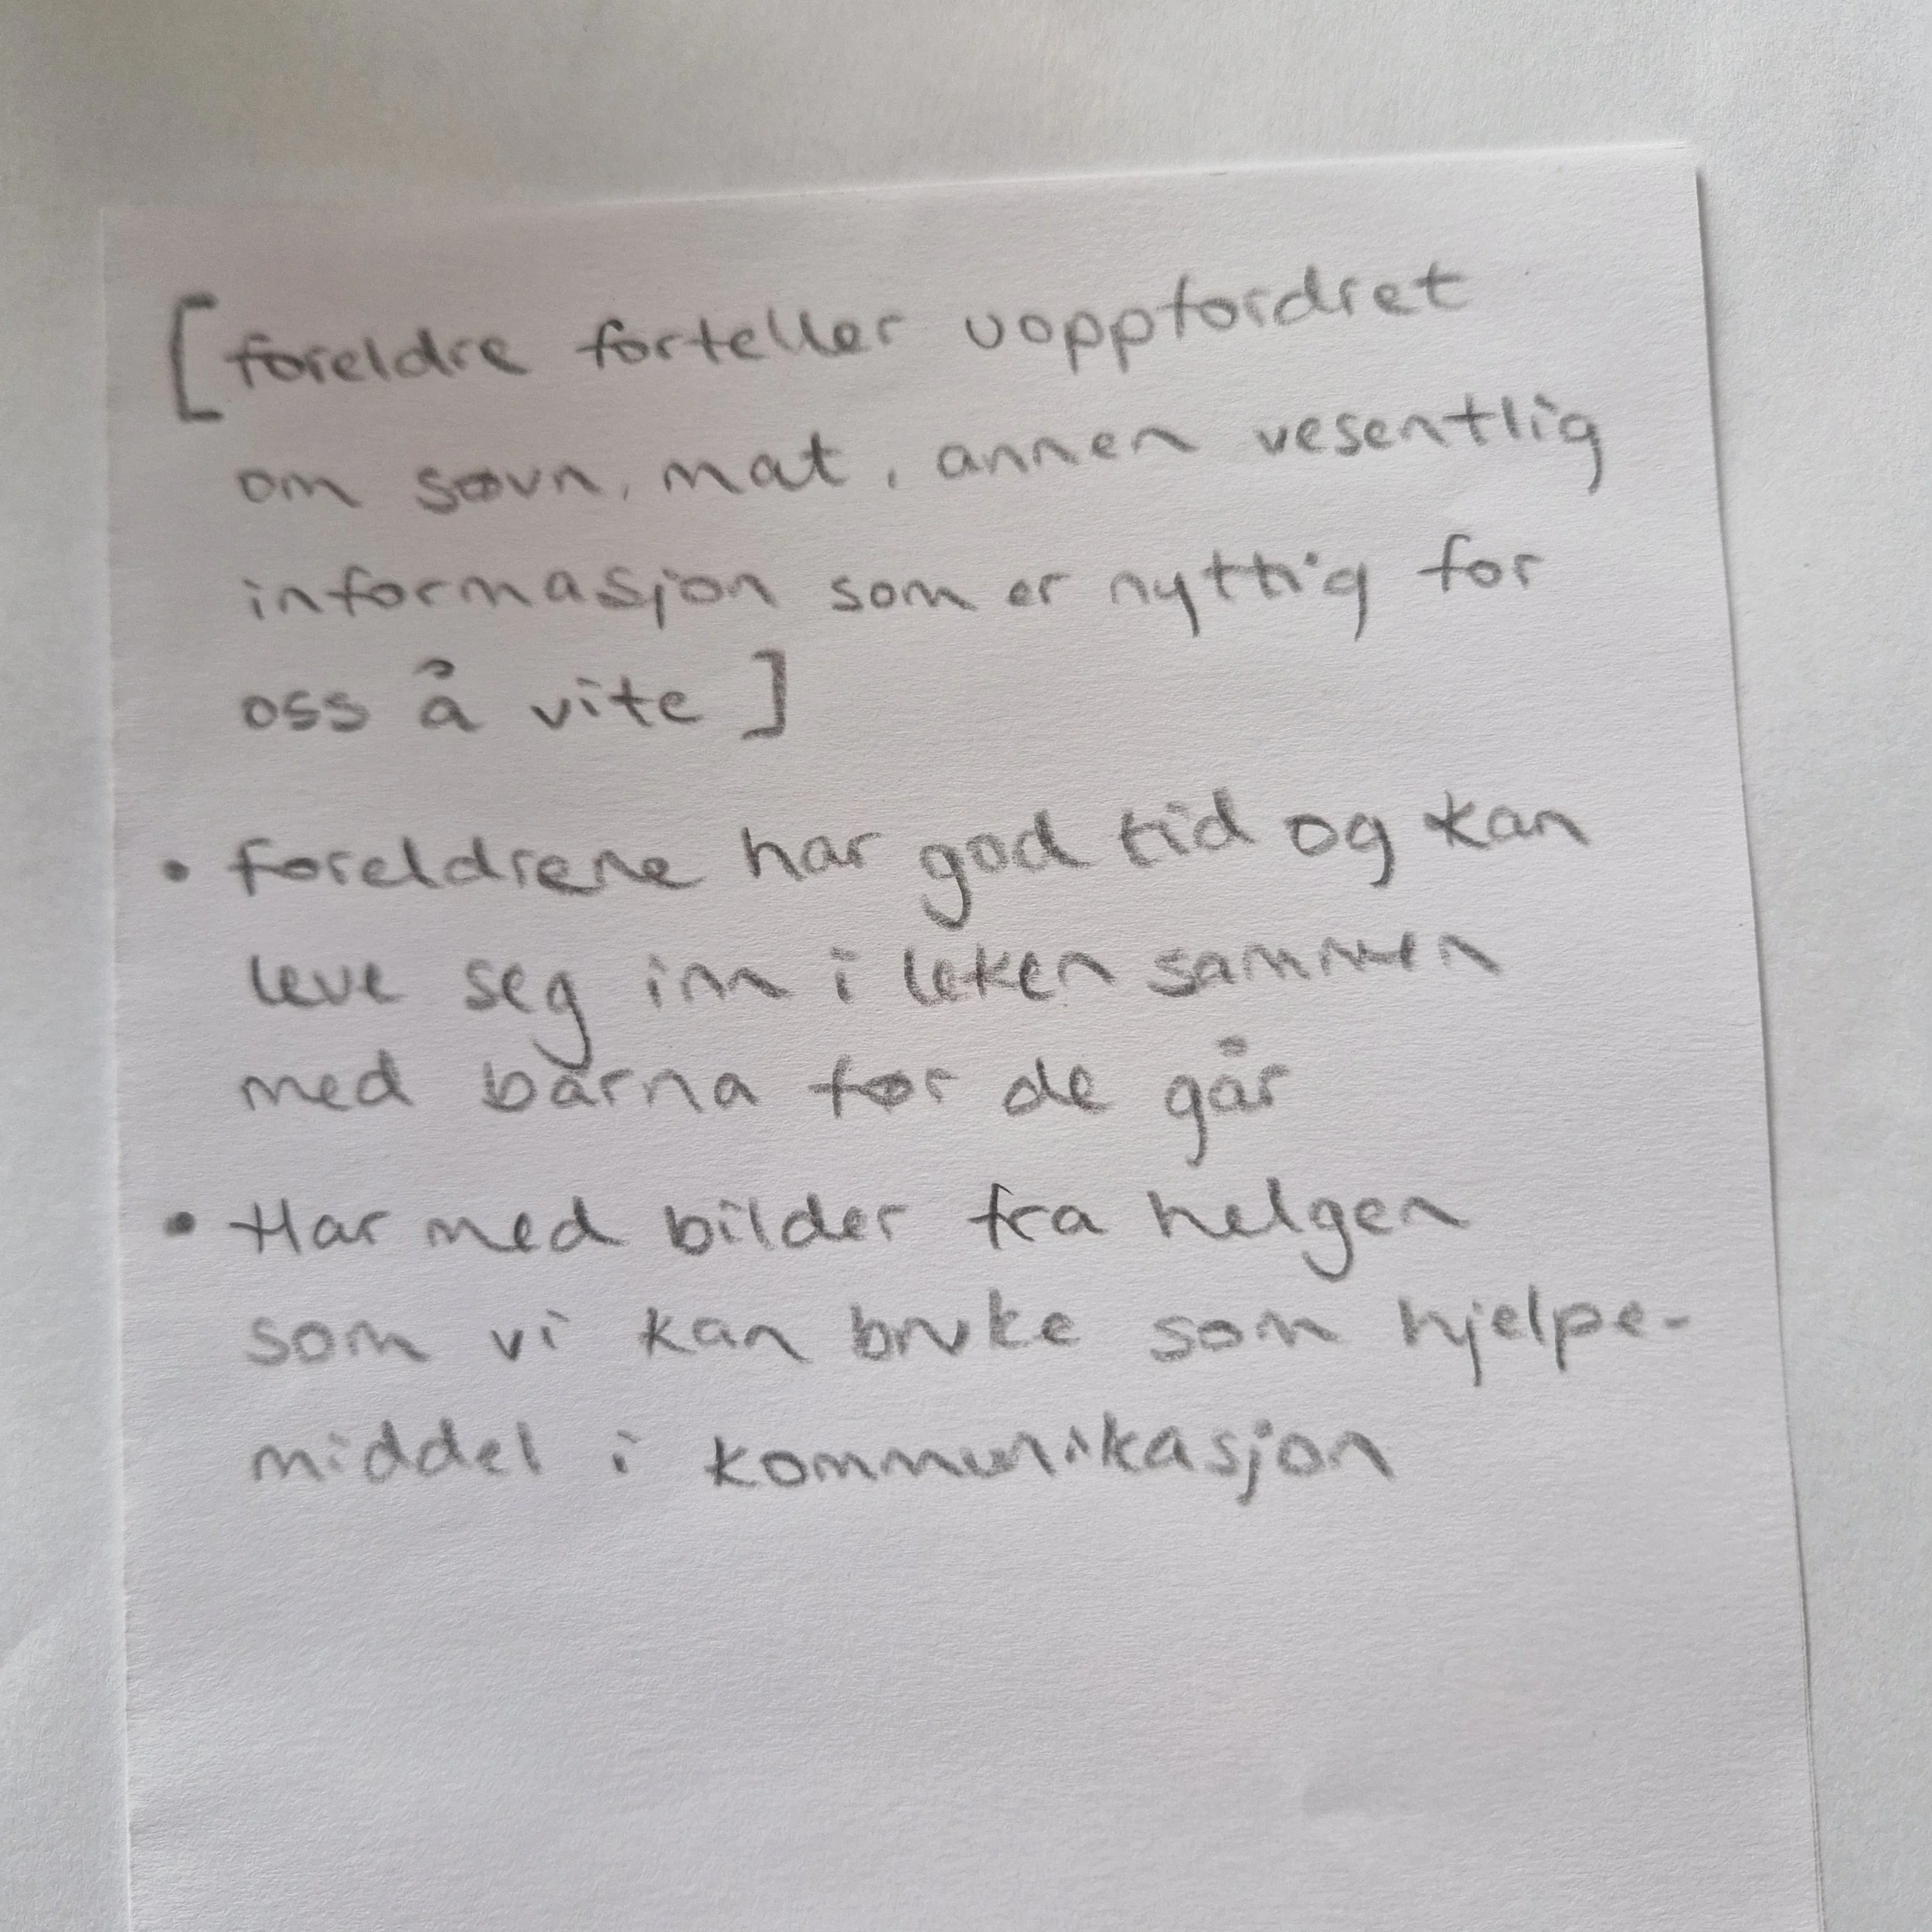 [foreldre forteller uoppfordret
om søvn, mat, annen vesentlig
informasjon som er nyttig for
oss å vite]
• foreldrene har god tid og kan
leve seg inn i leken sammen
med barna før de går
• Har med bilder fra helgen
som vi kan bruke som hjelpe-
middel i kommunikasjon